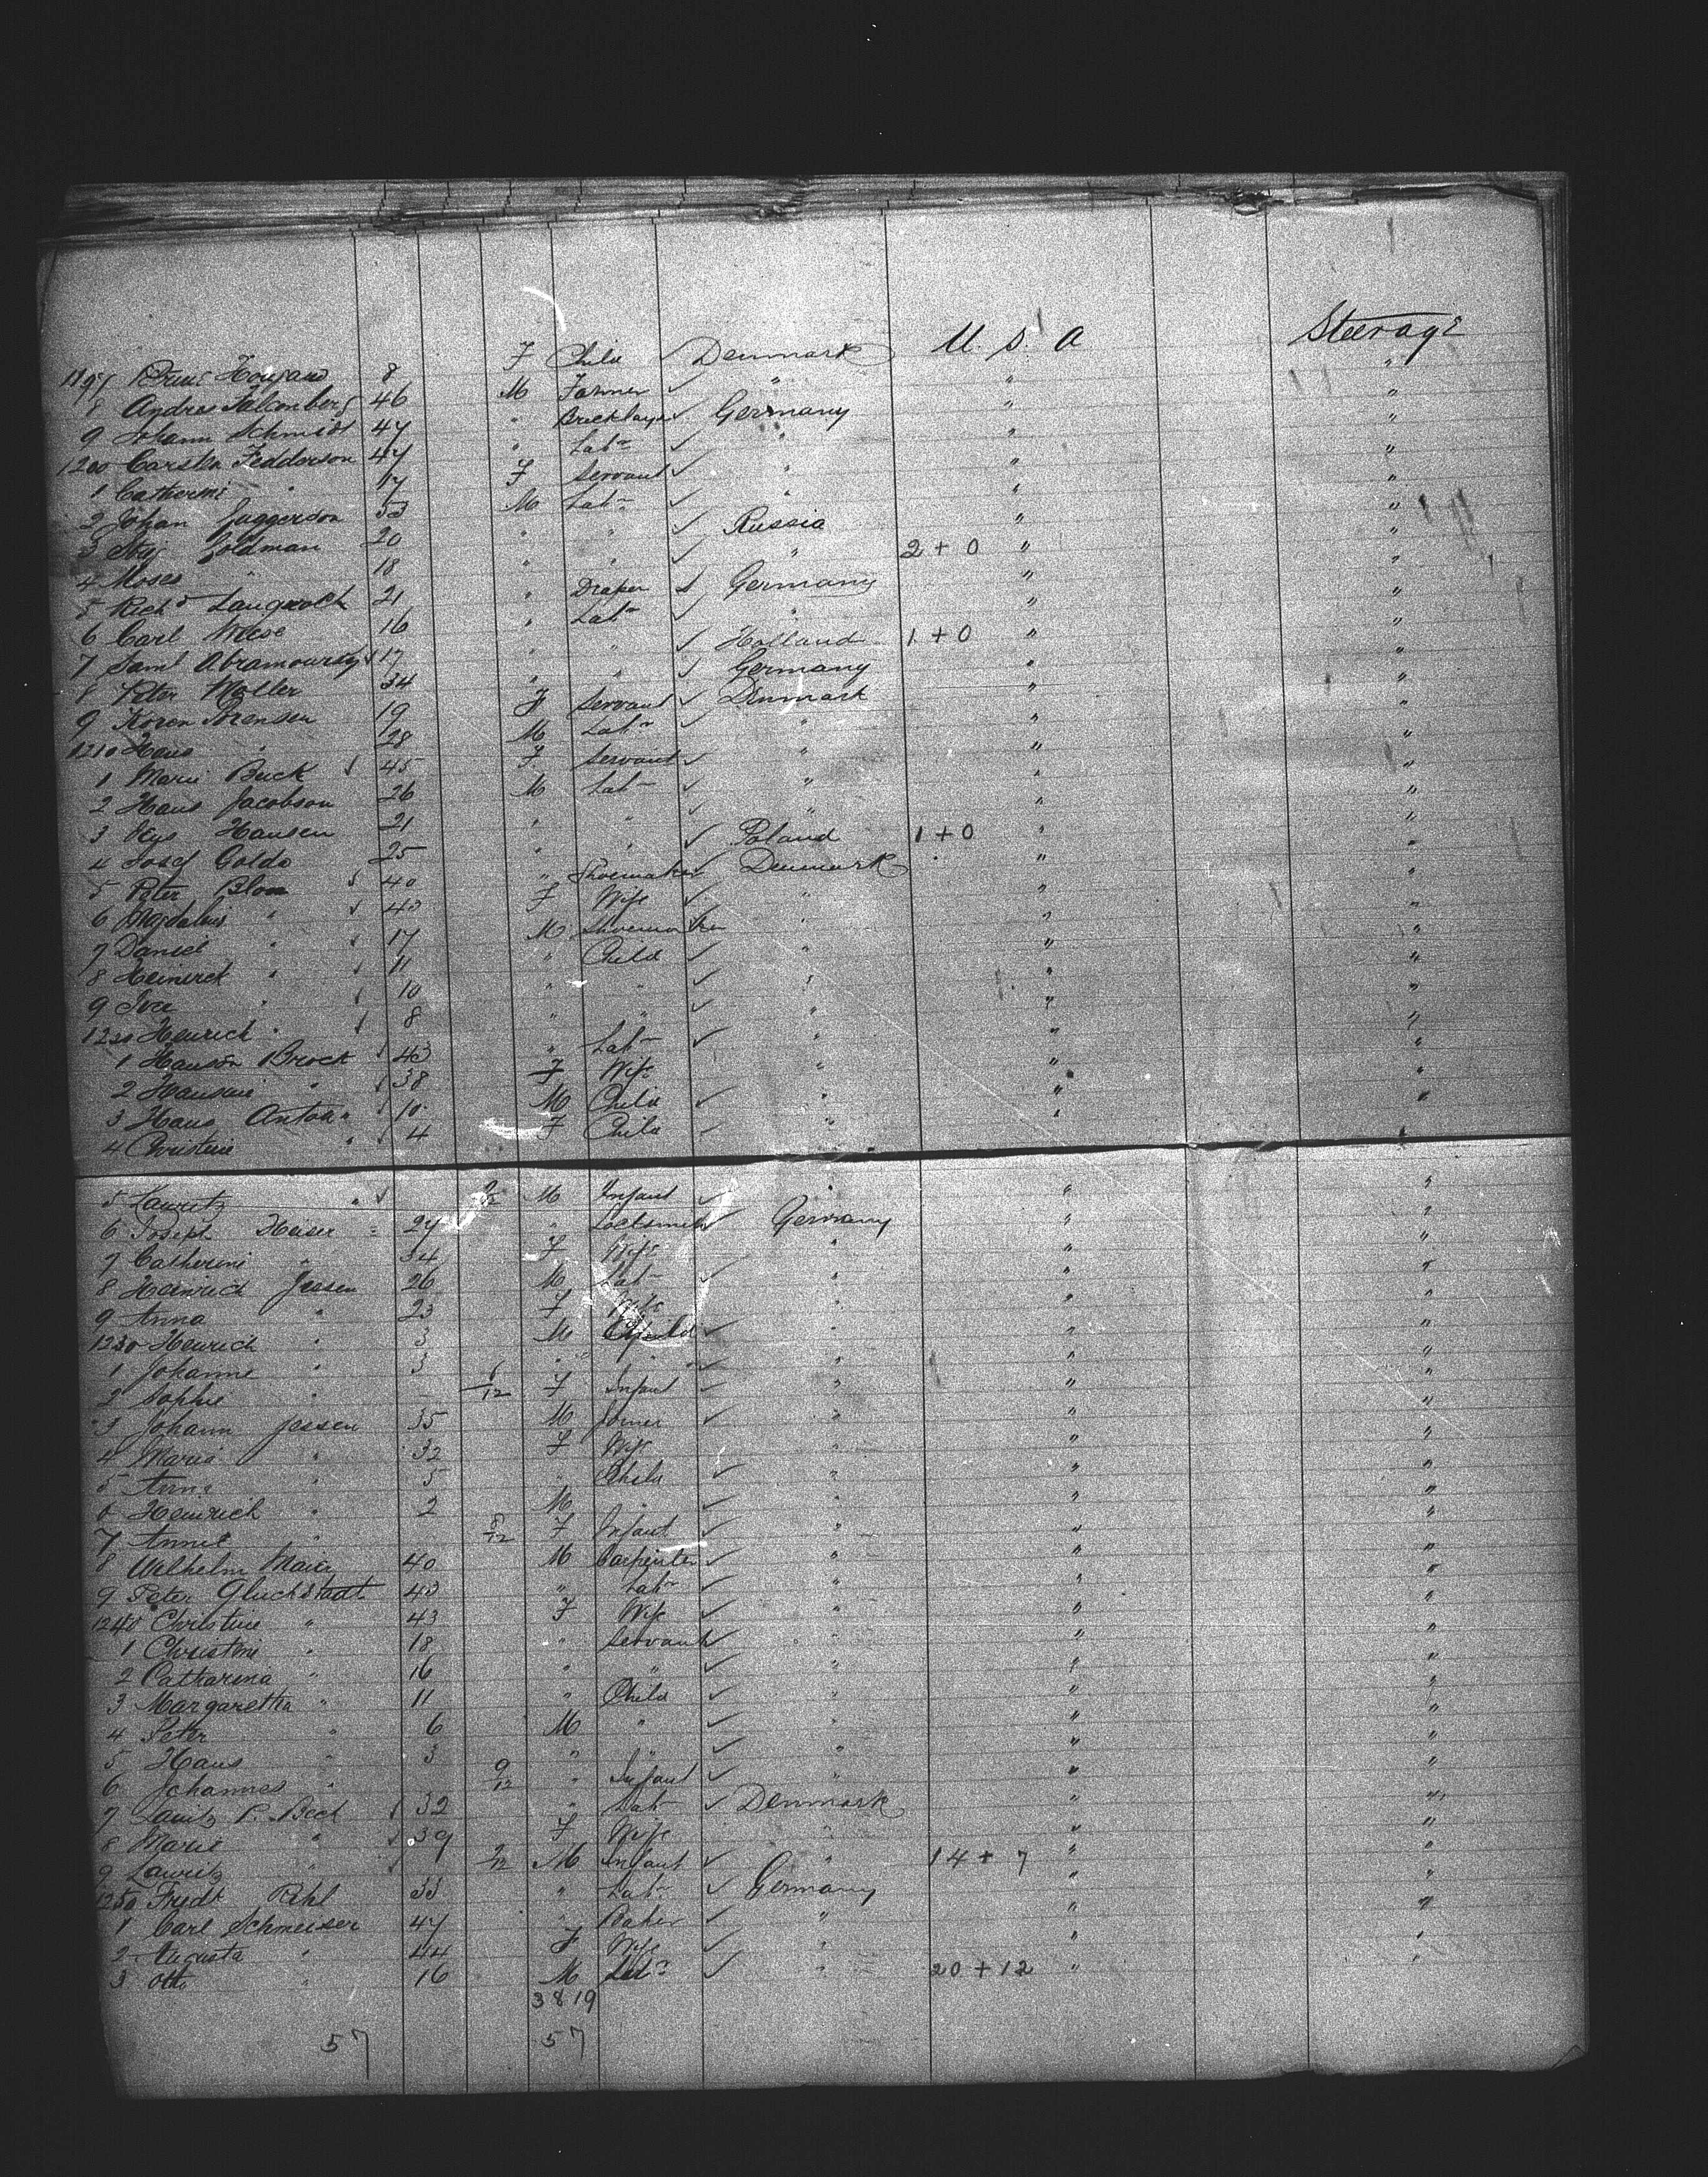 1197 Hougaard 8 F Child ✓ Denmark U. S. A Steerage
8 Andras Falconberg 46 M Farmer ✓ " " "
9 Johann Schmidt 47 " Bricklayer ✓ Germany " "
1200 Carsten Fedderson 47 " Labr ✓ " " "
1 Catherine " 17 F Servant ✓ " " "
2 Johan Juggerson 53 M Labr ✓ " " "
3 Goldman 20 " " ✓ Russia " "
4 Moses " 18 " " ✓ " 2 + 0 " "
5 Richd 21 " Draper ✓ Germany " "
6 Carl Wiese 16 " Labr ✓ " " "
7 Saml Abramowsky ✓ 17 " " ✓ Holland 1 + 0 " "
8 Peter Moller 34 " " ✓ Germany " "
9 Koren Sorensen 19 F Servant ✓ Denmark " "
1210 Hans " 28 M Labr ✓ " " "
1 Marie Buck ✓ 45 F Servant ✓ " " "
2 Hans Jacobson 26 M Labr ✓ " " "
3 Hansen 21 " " ✓ " " "
4 Josef Goldo 25 " " ✓ Poland 1 + 0 " "
5 Peter Blom ✓ 40 " Shoemaker ✓ Denmark " "
6 Magdalene " ✓ 40 F Wife ✓ " " "
7 Daniel " ✓ 17 M Shoemaker " " "
8 Heinrich " ✓ 11 " Child ✓ " " "
9 " ✓ 10 " " ✓ " " "
1220 Heinrich " ✓ 8 " " ✓ " " "
1 Hanson Brock ✓ 43 " Labr ✓ " " "
2 " ✓ 38 F Wife " " "
3 Hans Anton " ✓ 10 M Child ✓ " " "
4 Christine " ✓ 4 F Child ✓ " " "
5 Lauritz " ✓ M Infant ✓ " " "
6 Joseph Heiser 27 " Locksmith ✓ Germany " "
7 Catherine " 34 F Wife " " "
8 Heinrich Jessen 26 M Labr ✓ " " "
9 Anna " 23 F Wife " " "
1230 Heinrich " 3 M Child ✓ " " "
1 Johanne " 3 " " ✓ " " "
2 Sophie " 6/12 F Infant ✓ " " "
3 Johann Jessen 35 M Joiner ✓ " " "
4 Maria " 32 F Wife " " "
5 Anna " 5 " Child ✓ " " "
6 Heinrich " 2 M " ✓ " " "
7 Annie " 8/12 F Infant ✓ " " "
8 Wilhelm Maier 40 M Carpenter ✓ " " "
9 Peter Gluckstadt 40 " Labr ✓ " " "
1240 Christine " 43 F Wife ✓ " " "
1 Christine " 18 " Servant ✓ " " "
2 Catharina " 16 " " ✓ " " "
3 Margaretha " 11 " Child ✓ " " "
4 Peter " 6 M " ✓ " " "
5 Hans " 3 " " ✓ " " "
6 Johannes " 9/12 " Infant ✓ " " "
7 Lauritz P. Beck ✓ 32 " Labr ✓ Denmark " "
8 Marie " ✓ 39 F Wife " " "
9 Lauritz " ✓ 9/12 M Infant ✓ " 14 + 7 " "
1250 Fredk 33 " Labr ✓ Germany " "
1 Carl Schmeiser 47 " Baker ✓ " " "
2 Augusta " 44 F Wife ✓ " " "
3 Otto " 16 M Labr ✓ " 20 + 12 " "
38 19
57 57